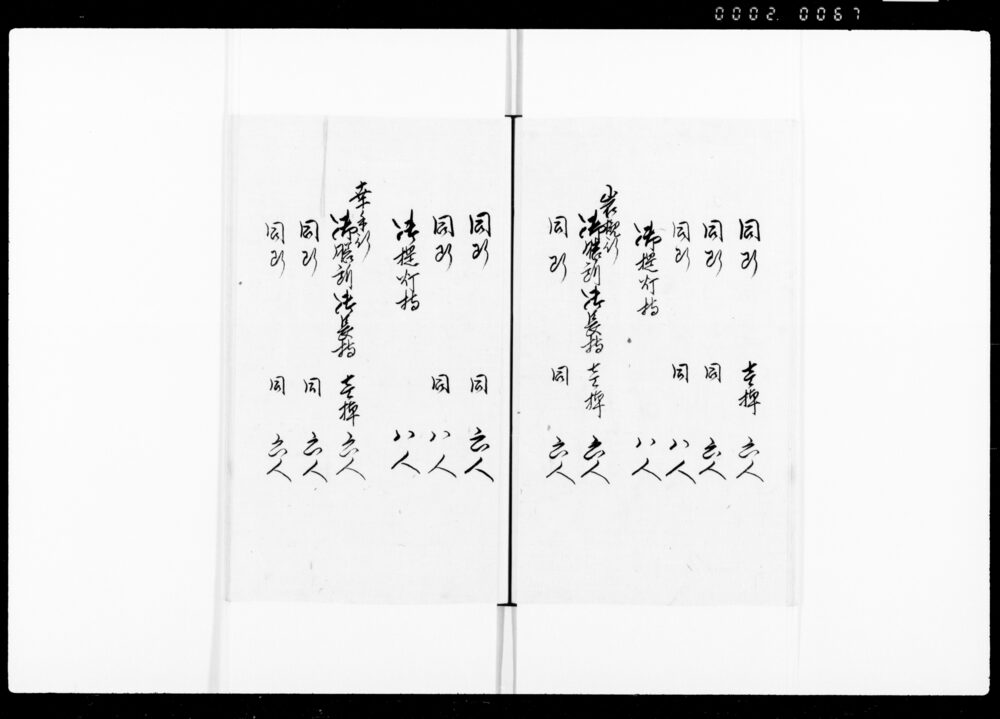 0002.0067
同断 壱棹 六人
同断 同 六人
同断 同 八人
御提灯持 八人
岩槻行
御膳所御長持 壱棹 六人
同断 同 六人
同断 同 六人
同断 同 八人
御提灯持 八人
幸手行
御膳所御長持 壱棹 六人
同断 同 六人
同断 同 六人